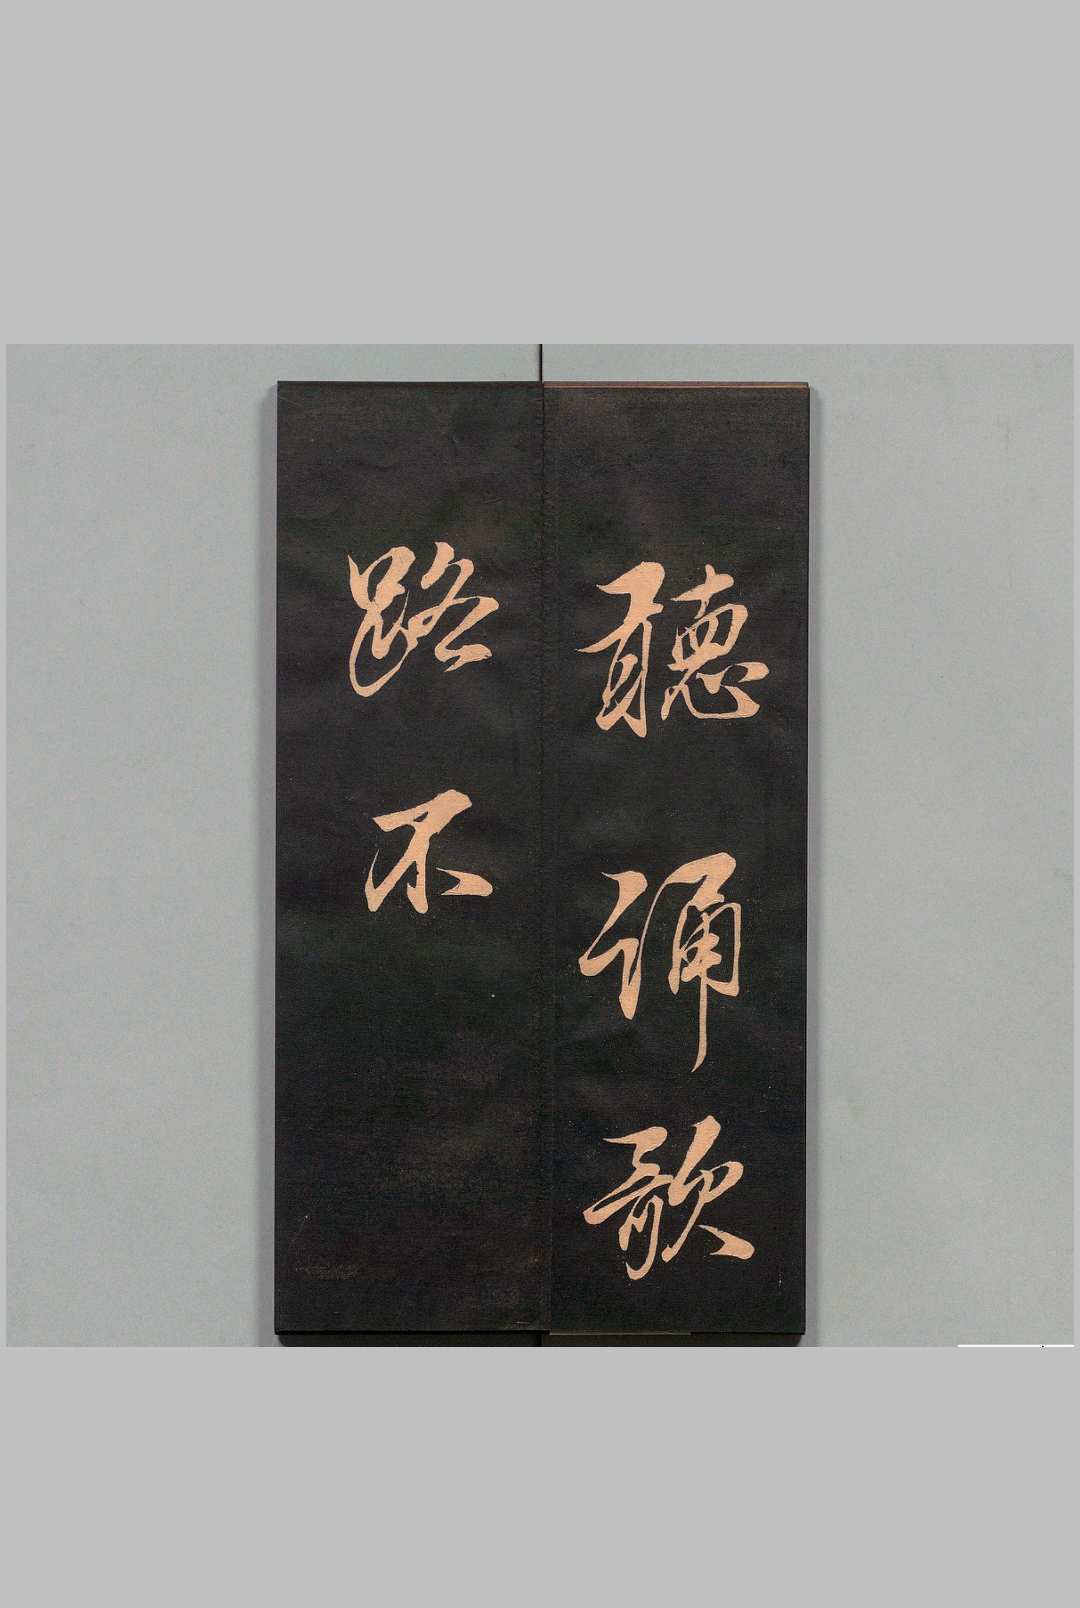 聽誦歌
路不